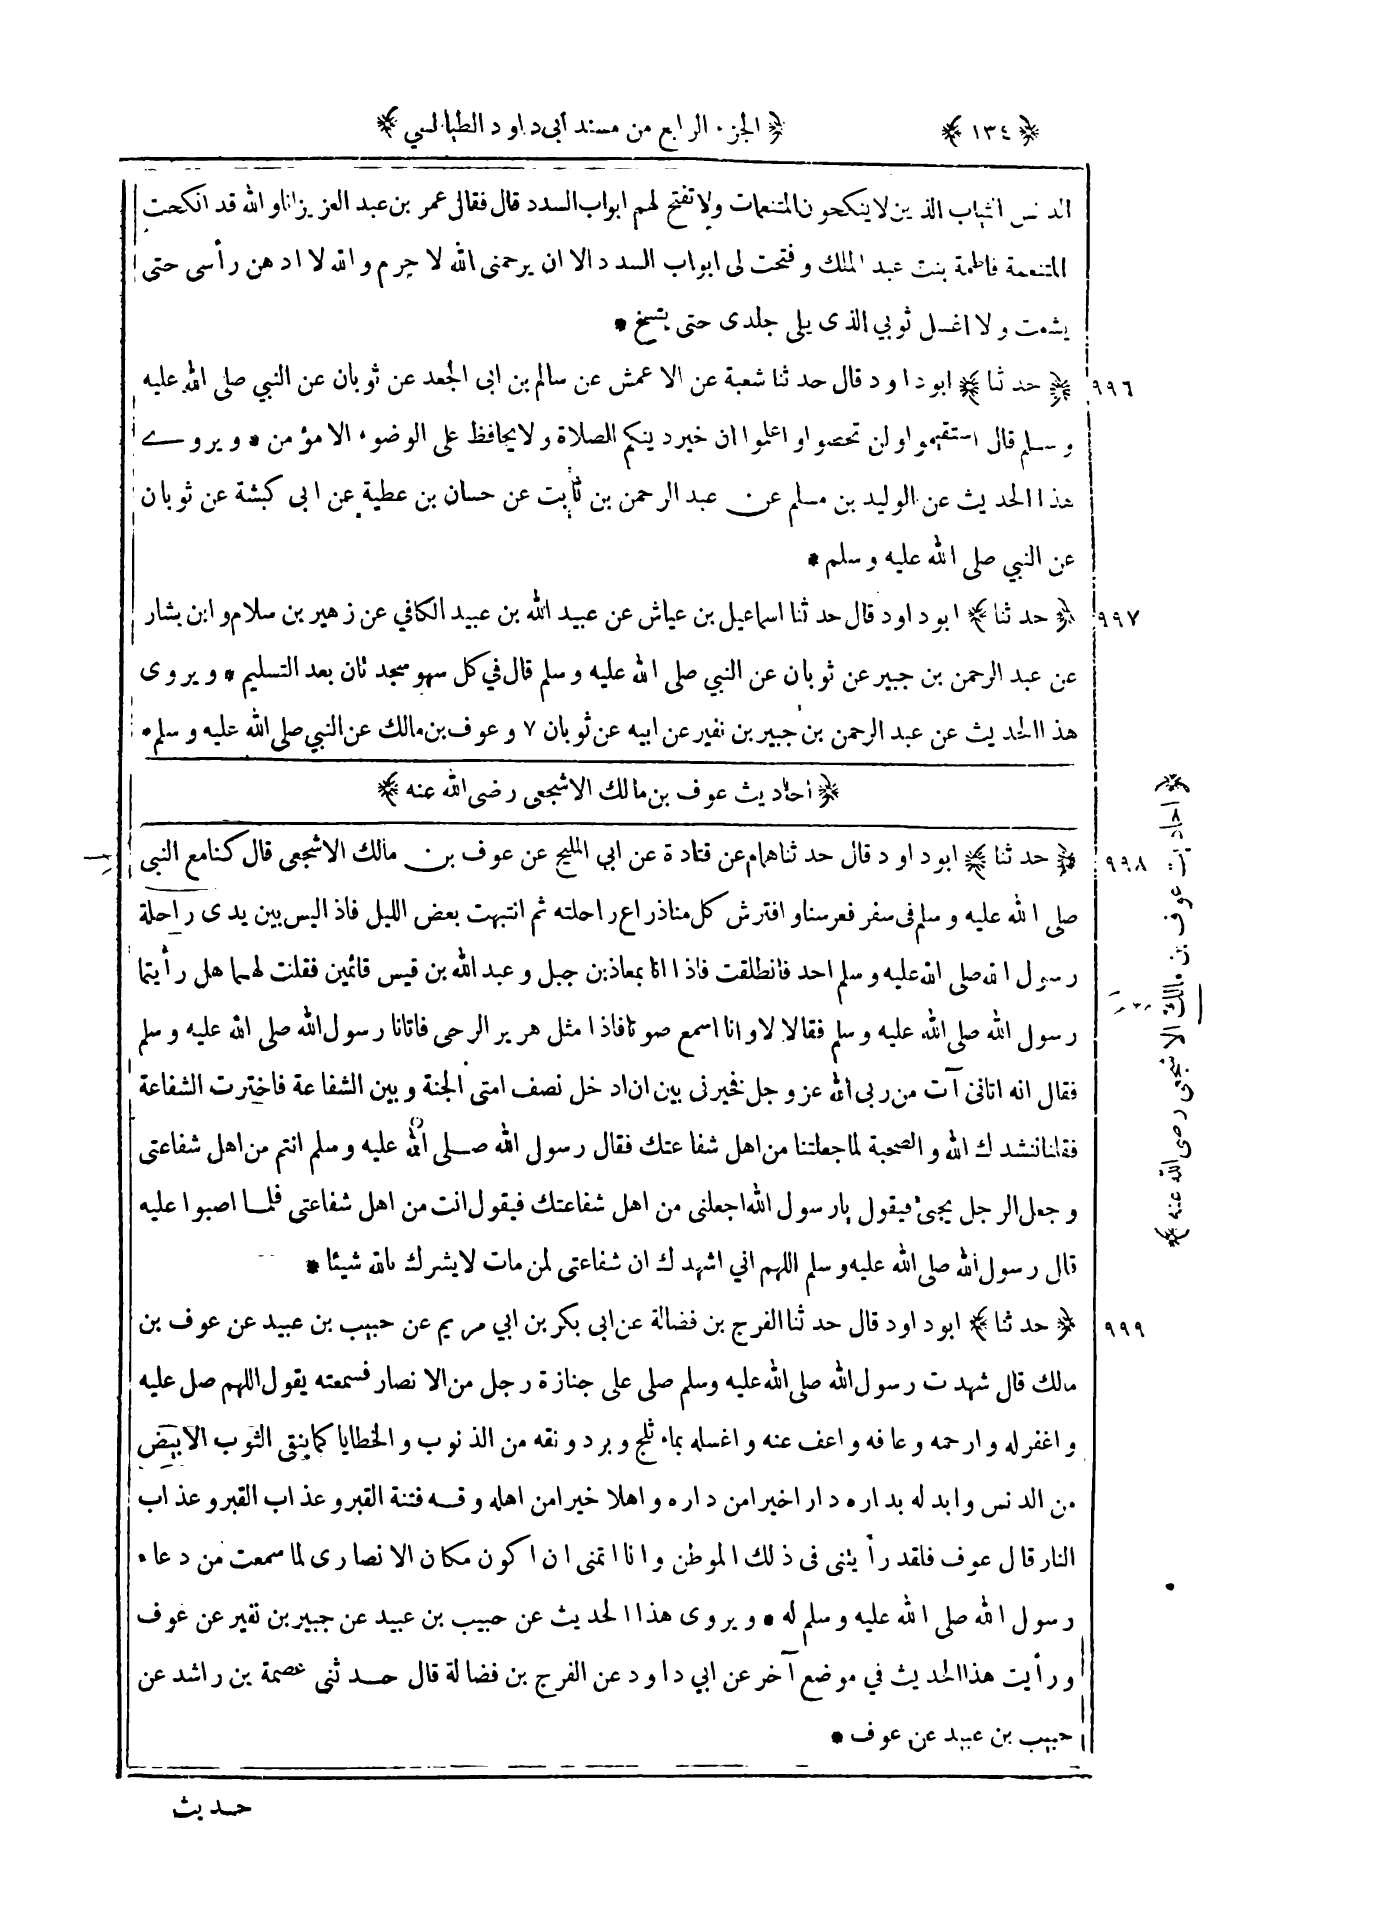 ﴿ ١٣٤ ﴾ ﴿ الجزء الرابع من مسند ابى داود الطيالسي ﴾
الدنس الثياب الذين لا ينكحون المتنعمات ولا تفتح لهم ابواب السدد قال فقال عمر بن عبد العزيز انا والله قد انكحت
المتنعمة فاطمة بنت عبد الملك وفتحت لى ابواب السدد الا ان يرحمنى الله لا جرم والله لا ادهن رأسى حتى
يشعث ولا اغسل ثوبي الذى يلى جلدى حتى يتسخ *
٩٩٦ ﴿ حدثنا ﴾ ابو داود قال حدثنا شعبة عن الاعمش عن سالم بن ابى الجعد عن ثوبان عن النبي صلى الله عليه
وسلم قال استقيموا ولن تحصوا واعلموا ان خير دينكم الصلاة ولا يحافظ على الوضوء الا مؤمن * ويروى
هذا الحديث عن الوليد بن مسلم عن عبد الرحمن بن ثابت عن حسان بن عطية عن ابى كبشة عن ثوبان
عن النبي صلى الله عليه وسلم *
٩٩٧ ﴿ حدثنا ﴾ ابو داود قال حدثنا اسماعيل بن عياش عن عبيد الله بن عبيد الكافي عن زهير بن سلام وابن بشار
عن عبد الرحمن بن جبير عن ثوبان عن النبي صلى الله عليه وسلم قال في كل سهو سجدتان بعد التسليم * ويروى
هذا الحديث عن عبد الرحمن بن جبير بن نفير عن ابيه عن ثوبان ٧ وعوف بن مالك عن النبي صلى الله عليه وسلم *
﴿ احاديث عوف بن مالك الاشجعى رضى الله عنه ﴾
٩٩٨ ﴿ حدثنا ﴾ ابو داود قال حدثنا همام عن قتادة عن ابي المليح عن عوف بن مالك الاشجعى قال كنا مع النبى
صلى الله عليه وسلم فى سفر فعرسنا وافترش كل منا ذراع راحلته ثم انتبهت بعض الليل فاذا ليس بين يدى راحلة
رسول الله صلى الله عليه وسلم احد فانطلقت فاذا انا بمعاذ بن جبل وعبد الله بن قيس قائمين فقلت لهما هل رأيتما
رسول الله صلى الله عليه وسلم فقالا لا وانا اسمع صوتا فاذا مثل هرير الرحى فاتانا رسول الله صلى الله عليه وسلم
فقال انه اتانى آت من ربى الله عز وجل فخيرنى بين ان ادخل نصف امتى الجنة وبين الشفاعة فاخترت الشفاعة
فقلنا ننشدك الله والصحبة لما جعلتنا من اهل شفاعتك فقال رسول الله صلى الله عليه وسلم انتم من اهل شفاعتى
وجعل الرجل يجىء فيقول يا رسول الله اجعلنى من اهل شفاعتك فيقول انت من اهل شفاعتى فلما اصبوا عليه
قال رسول الله صلى الله عليه وسلم اللهم اني اشهدك ان شفاعتى لمن مات لا يشرك بالله شيئا *
٩٩٩ ﴿ حدثنا ﴾ ابو داود قال حدثنا الفرج بن فضالة عن ابى بكر بن ابي مريم عن حبيب بن عبيد عن عوف بن
مالك قال شهدت رسول الله صلى الله عليه وسلم صلى على جنازة رجل من الانصار فسمعته يقول اللهم صل عليه
واغفر له وارحمه وعافه واعف عنه واغسله بماء ثلج وبرد ونقه من الذنوب والخطايا كما ينقى الثوب الابيض
من الدنس وابدله بداره دارا خيرا من داره واهلا خيرا من اهله وقه فتنة القبر وعذاب القبر وعذاب
النار قال عوف فلقد رأيتنى فى ذلك الموطن وانا اتمنى ان اكون مكان الانصارى لما سمعت من دعاء
رسول الله صلى الله عليه وسلم له * ويروى هذا الحديث عن حبيب بن عبيد عن جبير بن نفير عن عوف
ورأيت هذا الحديث في موضع آخر عن ابي داود عن الفرج بن فضالة قال حدثنى عصمة بن راشد عن
حبيب بن عبيد عن عوف *
﴿ احاديث عوف بن مالك الاشجعى رضى الله عنه ﴾
حديث